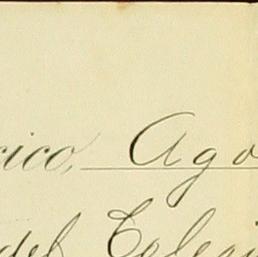 xico, Ago
del Colegi